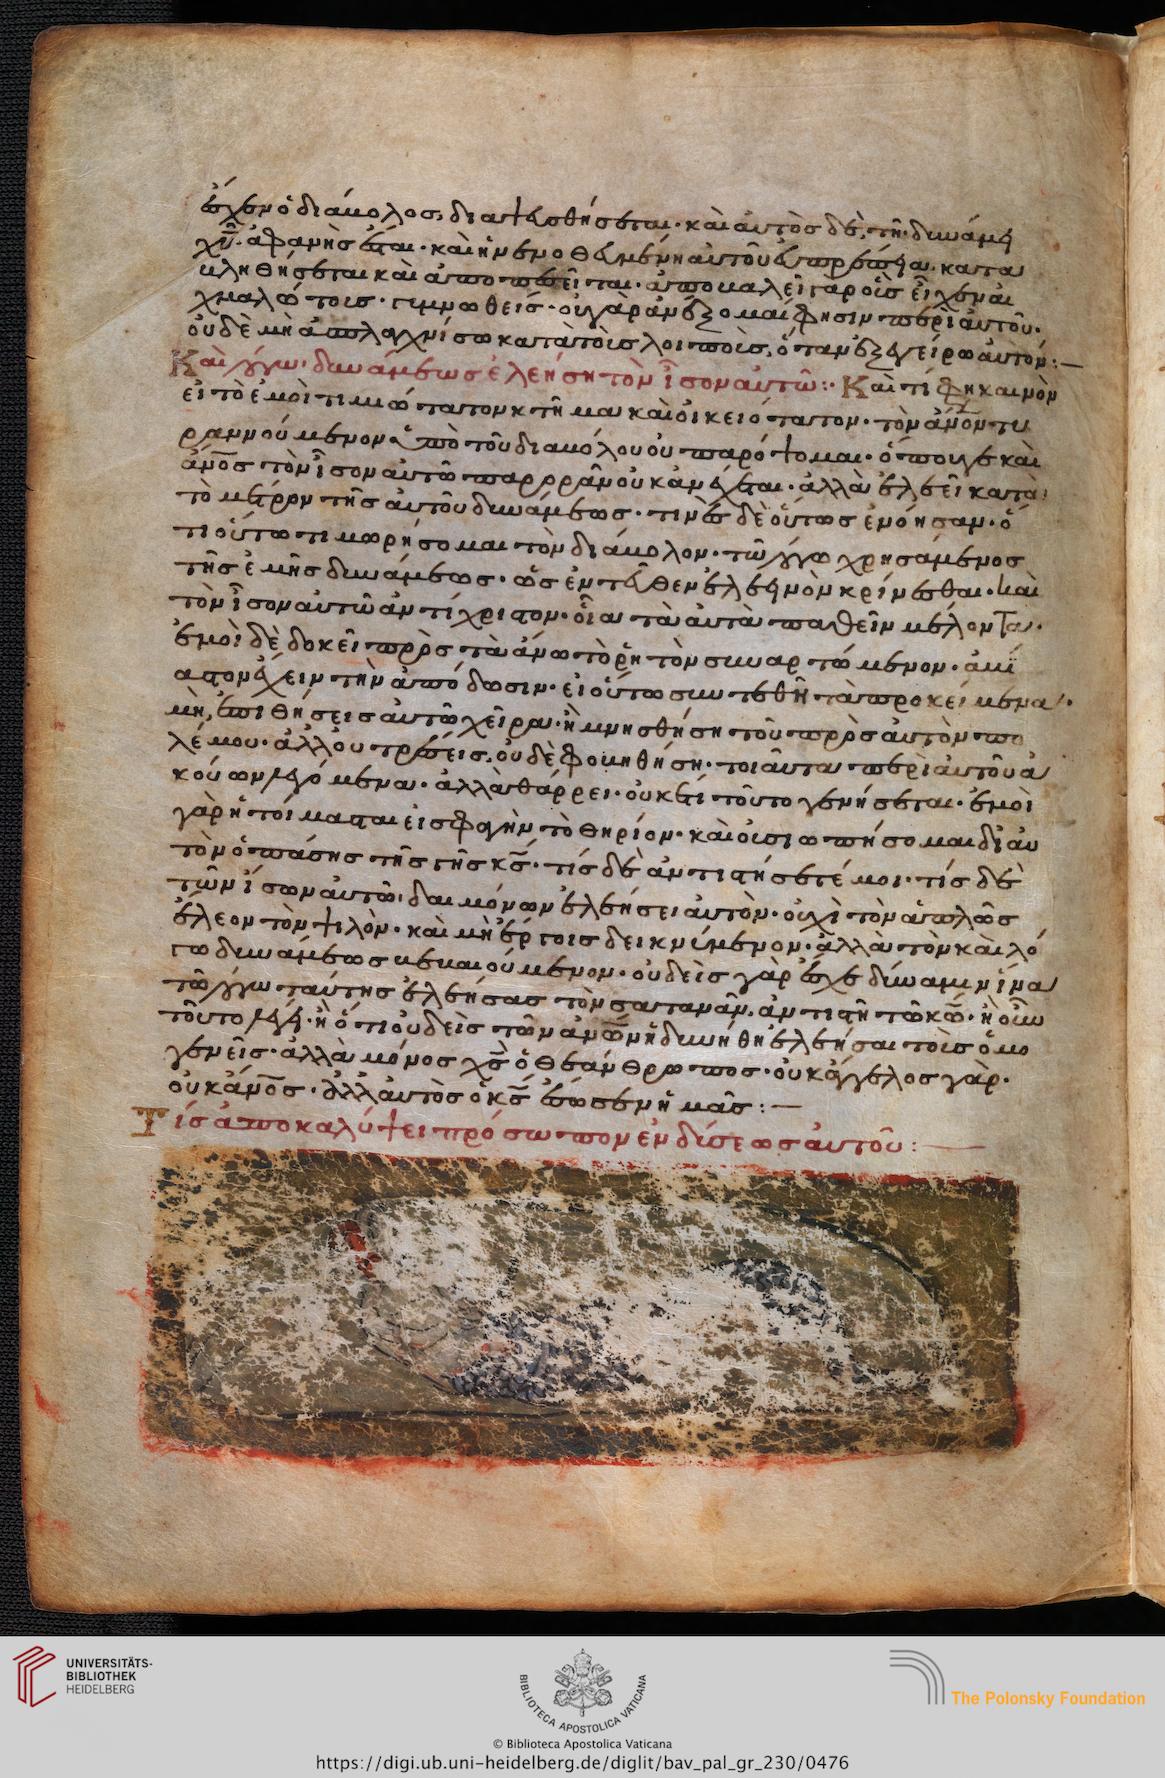 ἔχειν ὁ διάβολος, διαψευσθήσεται· καὶ αὐτὸς δὲ, τῆ δυνάμει
χυ ἀφανὴς ἔσται· καὶ ἡ
κληθήσεται καὶ ἀποπεσεῖται· ἀποκαλεῖ γὰρ οἷς εἶχεν αἰ
χμαλώτοις· γυμνωθείς· οὐ γὰρ ἀνέξομαί φησιν περὶ αὐτοῦ·
οὐδὲ μὴ σπλαγχνίσω κατὰ τοῖς λοιποῖς, ὅταν ἐξεγείρω αὐτόν:—
Καὶ λόγω δυνάμεως ἐλεήση τὸν ἴσον αὐτῶ:· Καὶ τί φη καινὸν
εἰ τὸ ἐμοὶ τιμιώτατον κτῆμα καὶ οἰκειότατον· τὸν ἄνον τυ
ραννούμενον ὑπὸ τοῦ διαβόλου οὐ παρόψομαι· ὅπου γε καὶ
ἄνος τὸν ἴσον αὐτῶ παρορᾶν οὐκ ἀνέχεται· ἀλλὰ ἐλεεῖ κατὰ
τὸ μέτρον τῆς αὐτοῦ δυνάμεως· τινὲς δὲ οὕτως ἐνόησαν· ὅ
τι οὕτω τιμωρήσομαι τὸν διάβολον· τῶ λόγω χρησάμενος
τῆς ἐμῆς δυνάμεως· ὡς ἐντεῦθεν ἐλεεινὸν κρίνεσθαι· καὶ
τὸν ἴσον αὐτῶ ἀντίχριστον· οἷα τὰ αὐτὰ παθεῖν μέλοντα·
ἐμοὶ δὲ δοκεῖ πρὸς τὰ ἄνω τὸ ῥητὸν συναρτώμενον· ἀμί
αστον ἔχειν τὴν ἀπόδοσιν· εἰ οὕτω συντεθῆ τὰ προκείμενα·
μὴ, ἐπιθήσεις αὐτῶ χεῖρα· ἢ μνησθήση τοῦ πρὸς αὐτὸν πο
λέμου· ἀλλ' οὐ τρέσεις, οὐδὲ φοβηθήση· τοιαῦτα περὶ αὐτοῦ ἀ
κούων λεγόμενα· ἀλλὰ θάρρει· οὐκέτι τοῦτο γενήσεται· ἐμοὶ
γὰρ ἡτοίμασται εἰς σφαγὴν τὸ θηρίον· καὶ οὐ σιωπήσομαι δι' αὐ
τὸν ὁ πάσης τῆς γῆς κς· τίς δὲ ἀντιστήσεταί μοι· τίς δὲ
τῶν ἴσων αὐτῶ, δαιμόνων ἐλεήσει αὐτὸν· οὐχὶ τὸν ἁπλῶς
ἔλεον τὸν ψιλὸν· καὶ μὴ ἔργοις δεικνύμενον· ἀλλὰ τὸν καὶ λό
γω δυνάμεως βεβαιούμενον· οὐδεὶς γὰρ ἔσχε δύναμιν ἵνα
τῶ λόγω ταύτης ἐλεήσας τὸν σατανᾶν, ἀντιστῆ τῶ κω· ἢ οὖν
τοῦτο λέγει· ἢ ὅτι οὐδεὶς τῶν ἀνων ἠδυνήθη ἐλεῆσαι τοὺς ὁμο
γενεῖς· ἀλλὰ μόνος χς ὁ θεάνθρωπος· οὐκ ἄγγελος γὰρ·
οὐκ ἄνος· ἀλλ' αὐτὸς ὁ κς ἔσωσεν ἡμᾶς:—
Τίς ἀποκαλύψει πρόσωπον ἐνδύσεως αὐτοῦ:—
UNIVERSITÄTS-
BIBLIOTHEK
HEIDELBERG
BIBLIOTECA APOSTOLICA VATICANA
The Polonsky Foundation
© Biblioteca Apostolica Vaticana
https://digi.ub.uni-heidelberg.de/diglit/bav_pal_gr_230/0476